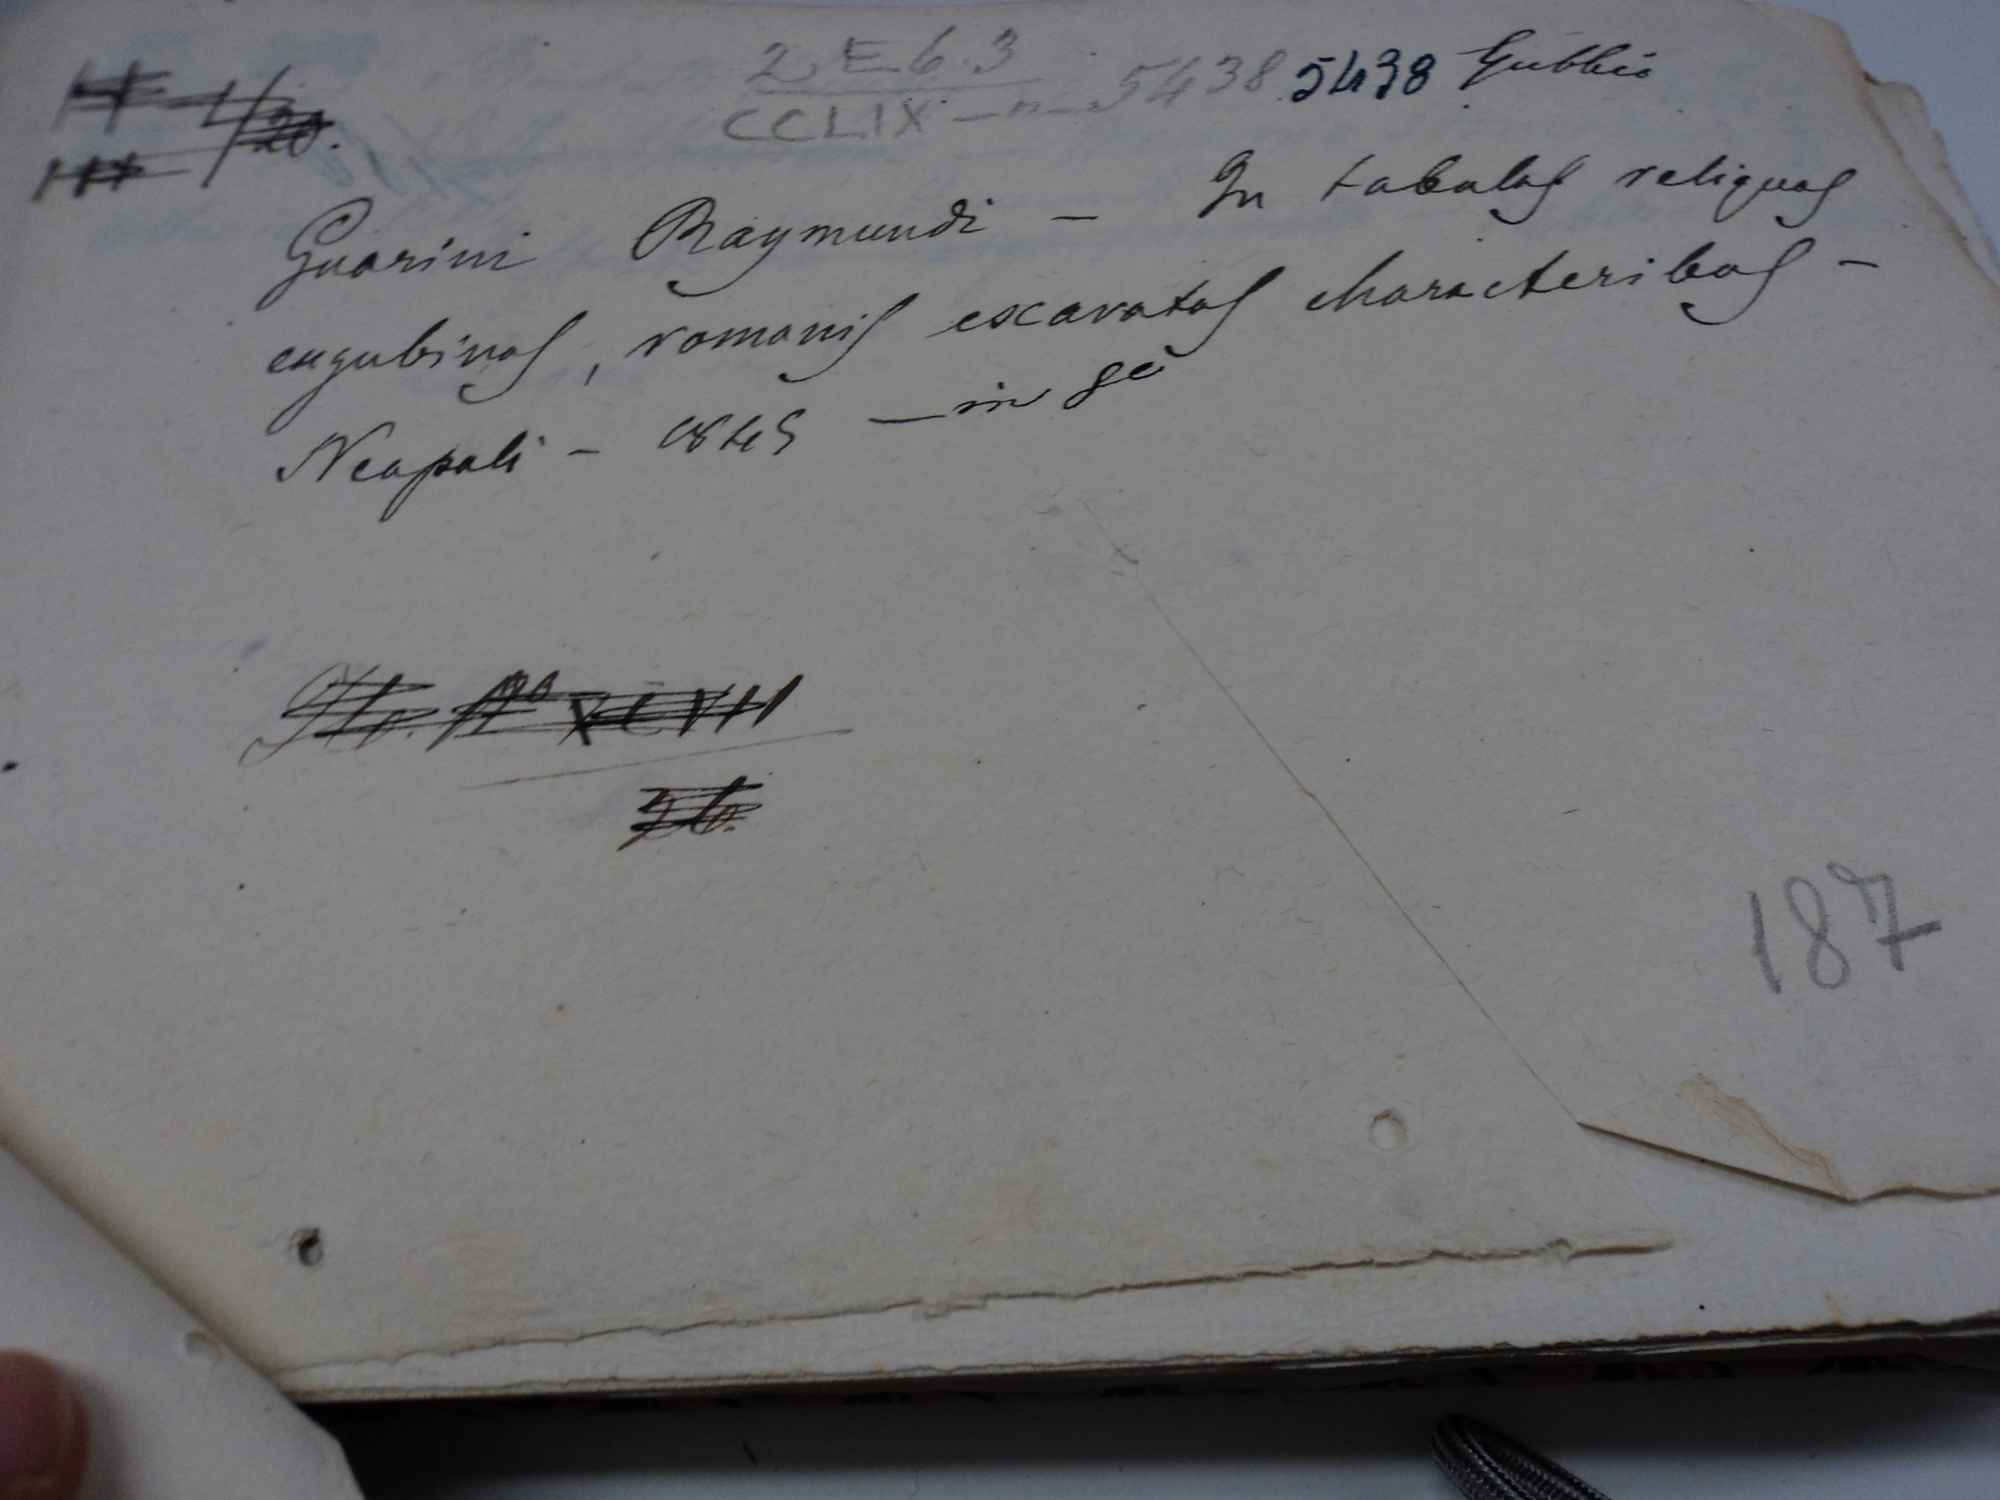 2 E 6.3
CCLIX — n — 5438 5438 Gubbio
Guarini Raymundi — In tabulas reliquas
eugubinas, romanis escavatas characteribus —
Neapoli — 1845 — in 8º
XCVII
36.
187